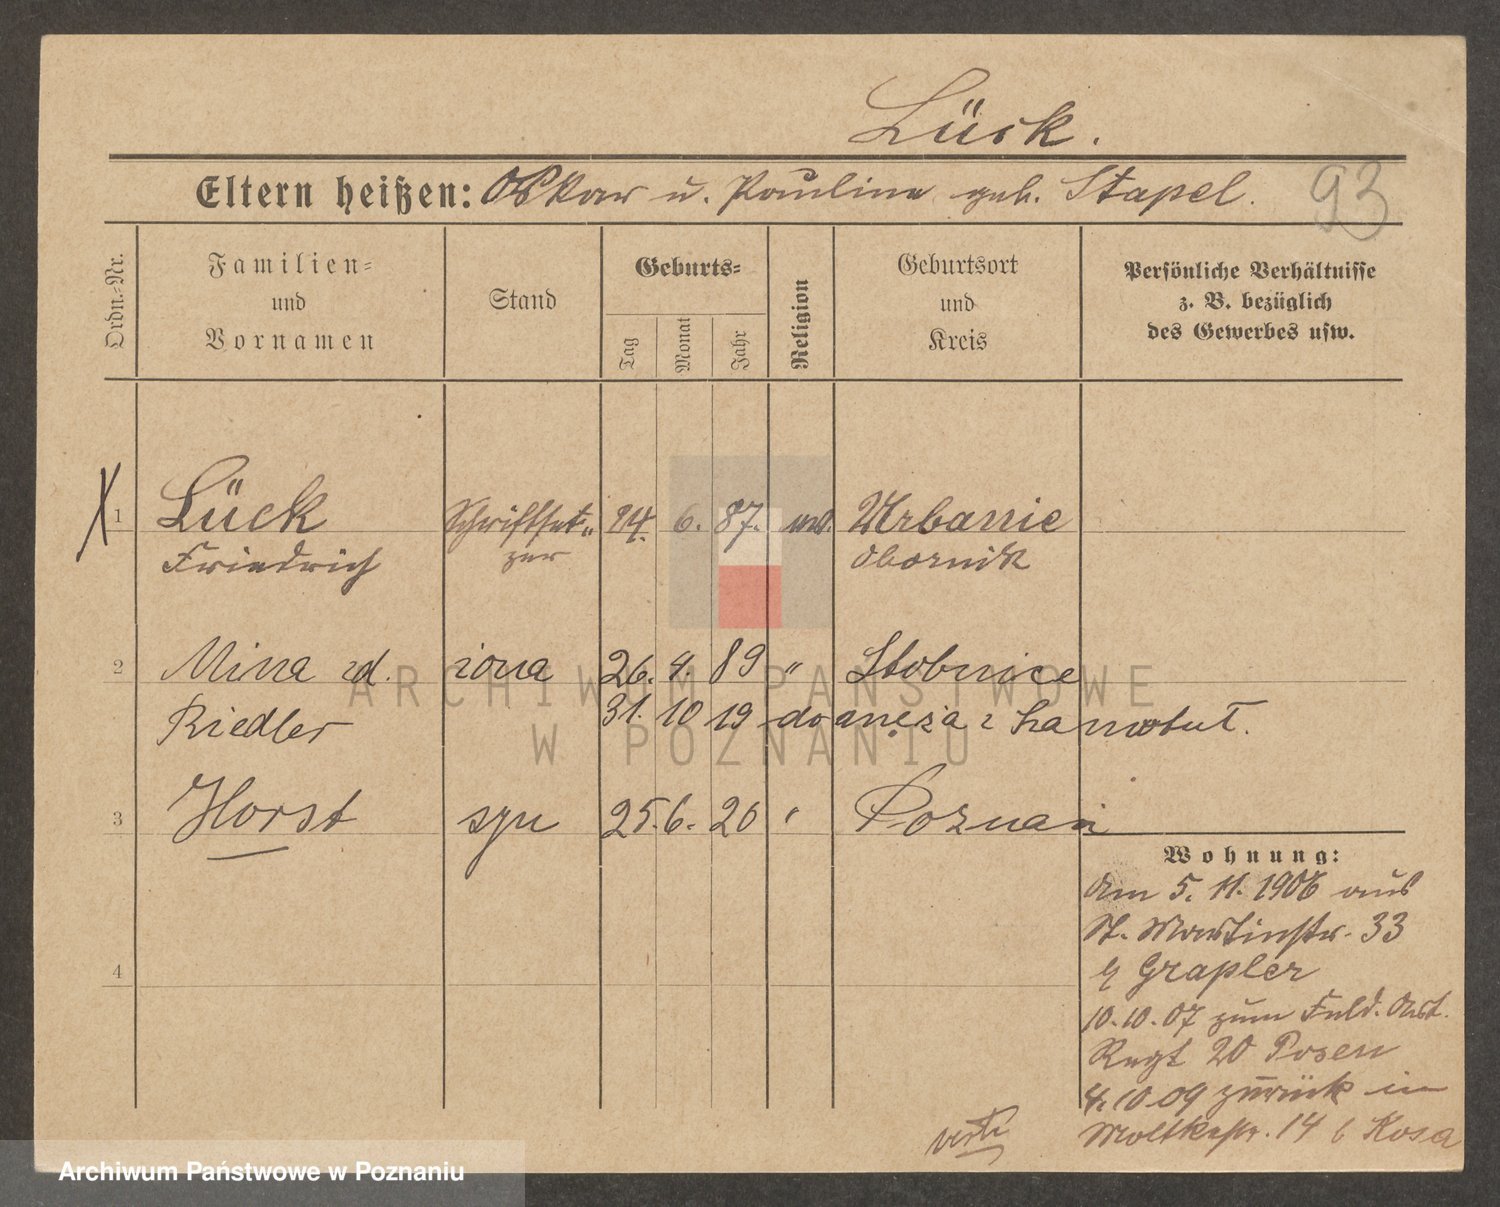 Lück.
Eltern heißen: Oskar u. Pauline geb. Stapel.
93
Ordn.=Nr.
Familien=
und
Vornamen
Stand
Geburts=
Tag
Monat
Jahr
Religion
Geburtsort
und
Kreis
Persönliche Verhältnisse
z. B. bezüglich
des Gewerbes usw.
1 Lück Schriftset= 24. 6. 87. Urbanie
Friedrich zer Obornik
2 Mina zd. żona 26. 4. 89 " Stobnice
Riedler 31. 10 19
3 Horst syn 25. 6. 20 " Poznań
4
Wohnung:
Am 5. 11. 1906 aus
St. Martinstr. 33
Grapler
10. 10. 07 zum Feld. Art.
Regt 20 Posen
4. 10 09 zurück in
Moltkestr. 14 b Kosa
verte
ARCHIWUM PAŃSTWOWE
W POZNANIU
Archiwum Państwowe w Poznaniu